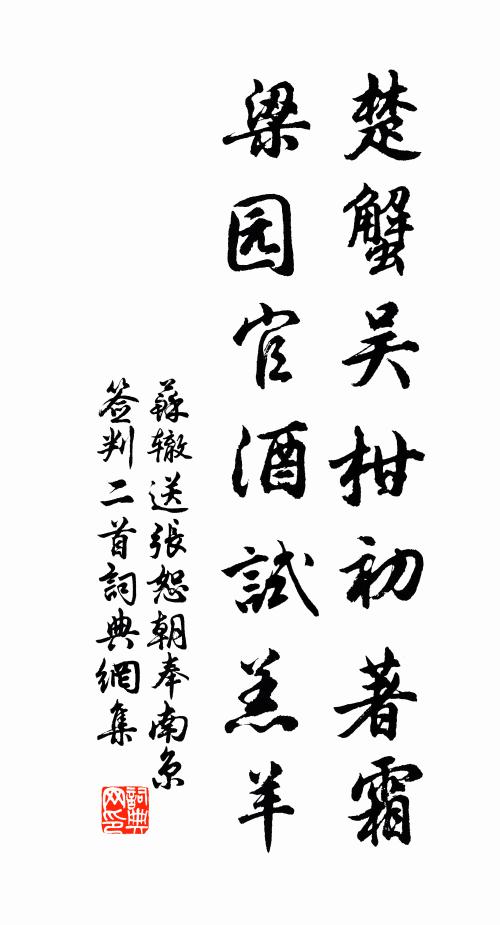 楚蟹吴柑初著霜
梁园官酒試羔羊
蘇辙送張恕朝奉南京
签判二首詞典網集
詞典网印